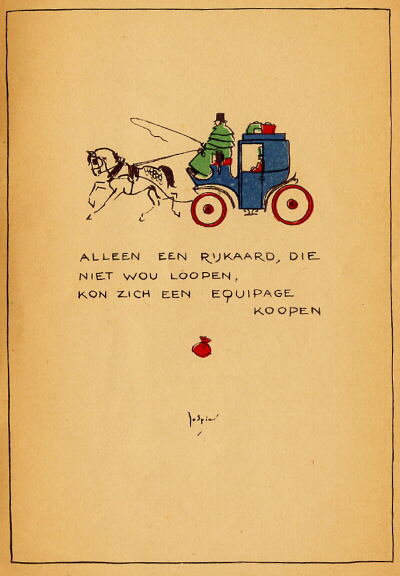 ALLEEN EEN RIJKAARD, DIE
NIET WOU LOOPEN,
KON ZICH EEN EQUIPAGE
KOOPEN
Jo Spier